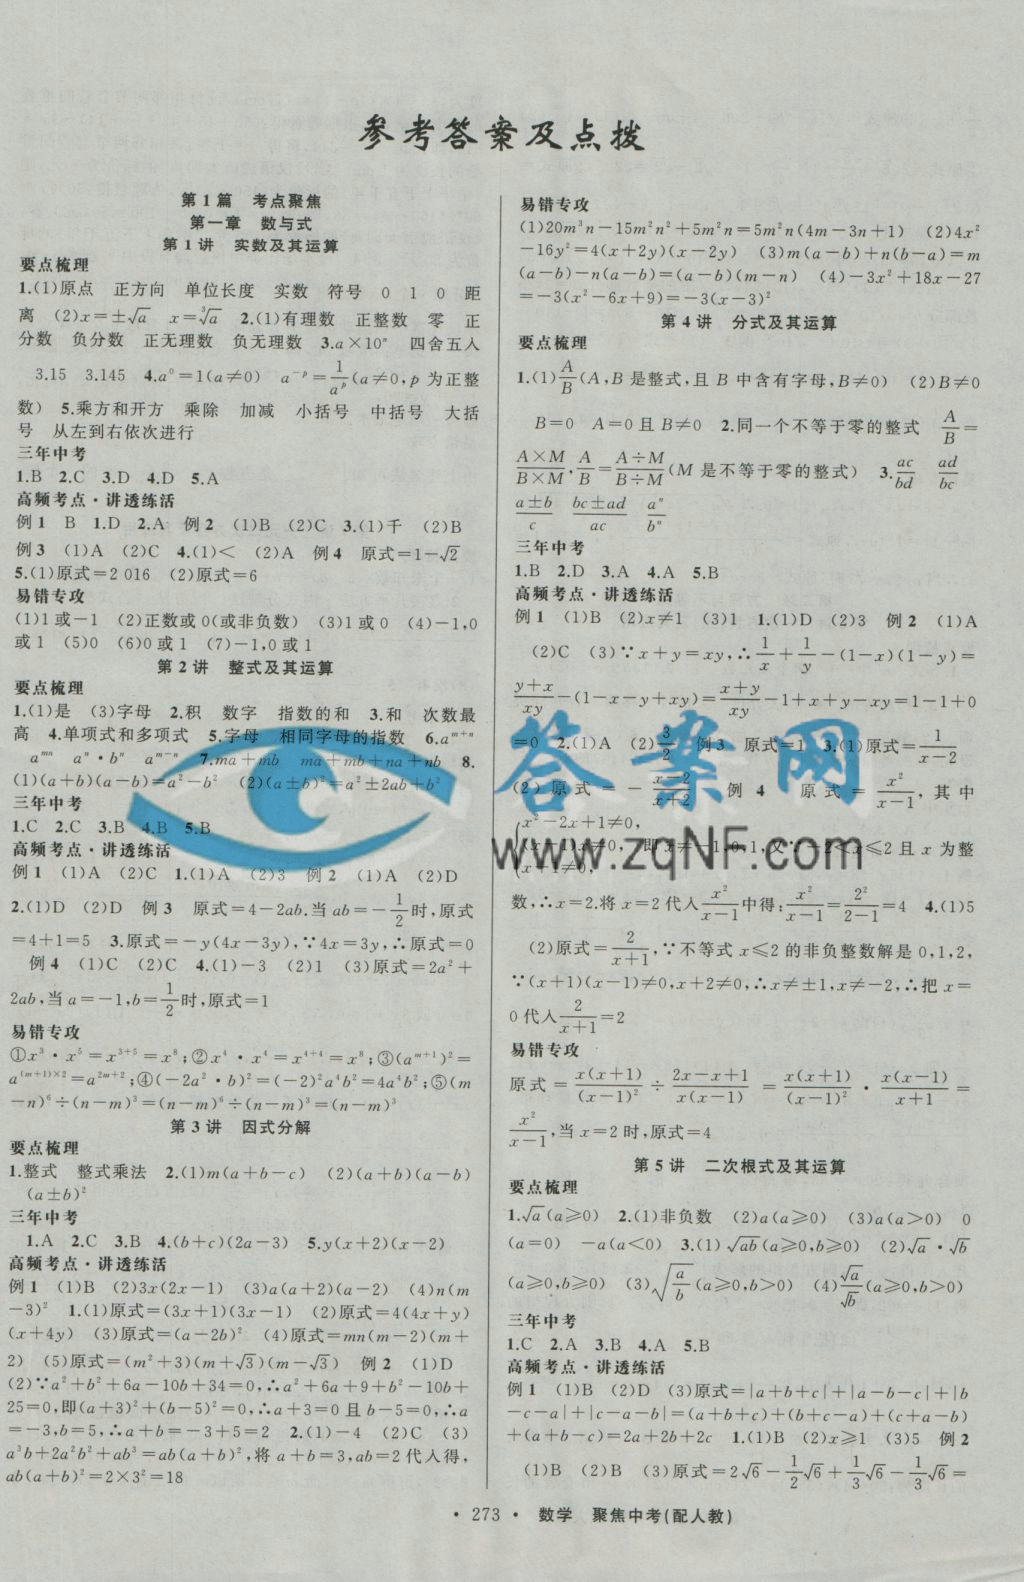 参考答案及点拨
第1篇 考点聚焦
第一章 数与式
第1讲 实数及其运算
要点梳理
1.(1)原点 正方向 单位长度 实数 符号 0 1 0 距
离 (2)x=±√a x=∛a 2.(1)有理数 正整数 零 正
分数 负分数 正无理数 负无理数 3.a×10ⁿ 四舍五人
3.15 3.145 4.a⁰=1(a≠0) a⁻ᵖ=1/aᵖ(a≠0,p为正整
数) 5.乘方和开方 乘除 加减 小括号 中括号 大括
号 从左到右依次进行
三年中考
1.B 2.C 3.D 4.D 5.A
高频考点·讲透练活
例1 B 1.D 2.A 例2 (1)B (2)C 3.(1)千 (2)B
例3 (1)A (2)C 4.(1)< (2)A 例4 原式=1-√2
5.(1)原式=2 016 (2)原式=6
易错专攻
(1)1或-1 (2)正数或0(或非负数) (3)1或0 (4)-1,0
或1 (5)0 (6)0或1 (7)-1,0或1
第2讲 整式及其运算
要点梳理
1.(1)是 (3)字母 2.积 数字 指数的和 3.和 次数最
高 4.单项式和多项式 5.字母 相同字母的指数 6.aᵐ⁺ⁿ
aᵐⁿ aⁿ·bⁿ aᵐ⁻ⁿ 7.ma+mb ma+mb+na+nb 8.
(1)(a+b)(a-b)=a²-b² (2)(a±b)²=a²±2ab+b²
三年中考
1.C 2.C 3.B 4.B 5.B
高频考点·讲透练活
例1 (1)A (2)C 1.(1)A (2)3 例2 (1)A (2)D
2.(1)D (2)D 例3 原式=4-2ab.当ab=-1/2时,原式
=4+1=5 3.原式=-y(4x-3y),∵4x=3y,∴原式=0
例4 (1)C (2)C 4.(1)-3 (2)1 (3)原式=2a²+
2ab,当a=-1,b=1/2时,原式=1
易错专攻
①x³·x⁵=x³⁺⁵=x⁸;②x⁴·x⁴=x⁴⁺⁴=x⁸;③(aᵐ⁺¹)²=
a⁽ᵐ⁺¹⁾ˣ²=a²ᵐ⁺²;④(-2a²·b)²=(-2)²a⁴b²=4a⁴b²;⑤(m
-n)⁶÷(n-m)³=(m-n)⁶÷(n-m)³=(n-m)³
第3讲 因式分解
要点梳理
1.整式 整式乘法 2.(1)m(a+b-c) (2)(a+b)(a-b)
(a±b)²
三年中考
1.A 2.C 3.B 4.(b+c)(2a-3) 5.y(x+2)(x-2)
高频考点·讲透练活
例1 (1)B (2)3x(2x-1) (3)a(a+2)(a-2) (4)n(m
-3)² 1.(1)原式=(3x+1)(3x-1) (2)原式=4(4x+y)
(x+4y) (3)原式=(a-2b)² (4)原式=mn(m-2)(m+
2) (5)原式=(m²+3)(m+√3)(m-√3) 例2 (1)D
(2)∵a²+b²+6a-10b+34=0,∴a²+6a+9+b²-10b+
25=0,即(a+3)²+(b-5)²=0,∴a+3=0且b-5=0,∴a
=-3,b=5,∴a+b=-3+5=2 2.(1)-4 (2)C (3)
a³b+2a²b²+ab³=ab(a+b)²,将a+b=3,ab=2代人得,
ab(a+b)²=2×3²=18
易错专攻
(1)20m³n-15m²n²+5m²n=5m²n(4m-3n+1) (2)4x²
-16y²=4(x+2y)(x-2y) (3)m(a-b)+n(b-a)=m
(a-b)-n(a-b)=(a-b)(m-n) (4)-3x²+18x-27
=-3(x²-6x+9)=-3(x-3)²
第4讲 分式及其运算
要点梳理
1.(1)A/B(A,B是整式,且B中含有字母,B≠0) (2)B≠0
B=0 A=0且B≠0 2.同一个不等于零的整式 A/B=
(A×M)/(B×M),A/B=(A÷M)/(B÷M)(M是不等于零的整式) 3.ac/bd ad/bc
(a±b)/c (bc±ad)/ac aⁿ/bⁿ
三年中考
1.B 2.D 3.A 4.A 5.B
高频考点·讲透练活
例1 (1)B (2)x≠1 (3)1 1.(1)D (2)3 例2 (1)A
(2)C (3)∵x+y=xy,∴1/x+1/y-(1-x)(1-y)=
(y+x)/xy-(1-x-y+xy)=(x+y)/xy-1+x+y-xy=1-1+0
=0 2.(1)A (2)3/2 例3 原式=1 3.(1)原式=1/(x-2)
(2)原式=-(x-2)/(x+2) 例4 原式=x²/(x-1),其中
{x²-2x+1≠0,
(x-1)x≠0, 即x≠-1,0,1,又∵-2<x≤2且x为整
x+1≠0,
数,∴x=2.将x=2代人x²/(x-1)中得:x²/(x-1)=2²/(2-1)=4 4.(1)5
(2)原式=2/(x+1),∵不等式x≤2的非负整数解是0,1,2,
∵(x+1)(x-1)≠0,x+2≠0,∴x≠±1,x≠-2,∴把x=
0代人2/(x+1)=2
易错专攻
原式=x(x+1)/(x-1)²÷(2x-x+1)/x(x-1)=x(x+1)/(x-1)²·x(x-1)/(x+1)=
x²/(x-1),当x=2时,原式=4
第5讲 二次根式及其运算
要点梳理
1.√a(a≥0) 2.(1)非负数 (2)a(a≥0) (3)a(a>0) 0
(a=0) -a(a<0) 3.(1)√ab(a≥0,b≥0) (2)√a·√b
(a≥0,b≥0) (3)√(a/b)(a≥0,b>0) (4)√a/√b(a≥0,b>0)
三年中考
1.C 2.A 3.B 4.A 5.B
高频考点·讲透练活
例1 (1)B (2)D (3)原式=|a+b+c|+|a-b-c|+|b
-c-a|+|c-a-b|=(a+b+c)+(b+c-a)+(c+a-b)
+(a+b-c)=2a+2b+2c 1.(1)B (2)x≥1 (3)5 例2
(1)B (2)B (3)原式=2√6-1/2√6+1/3√6-1/3√6=
·273· 数学 聚焦中考(配人教)
答案网
www.zqNF.com